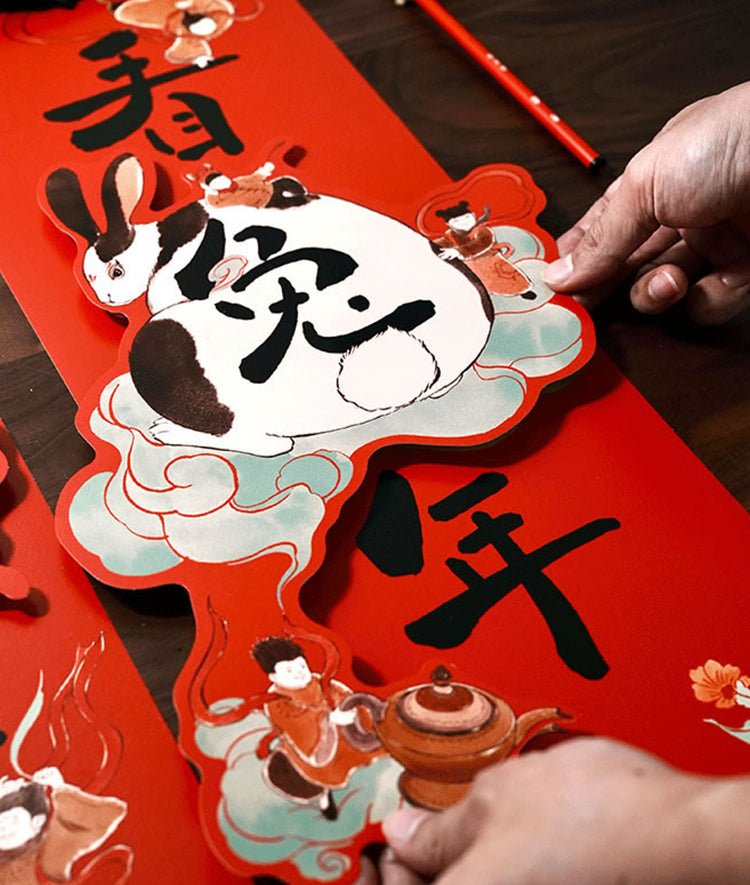 看兔年